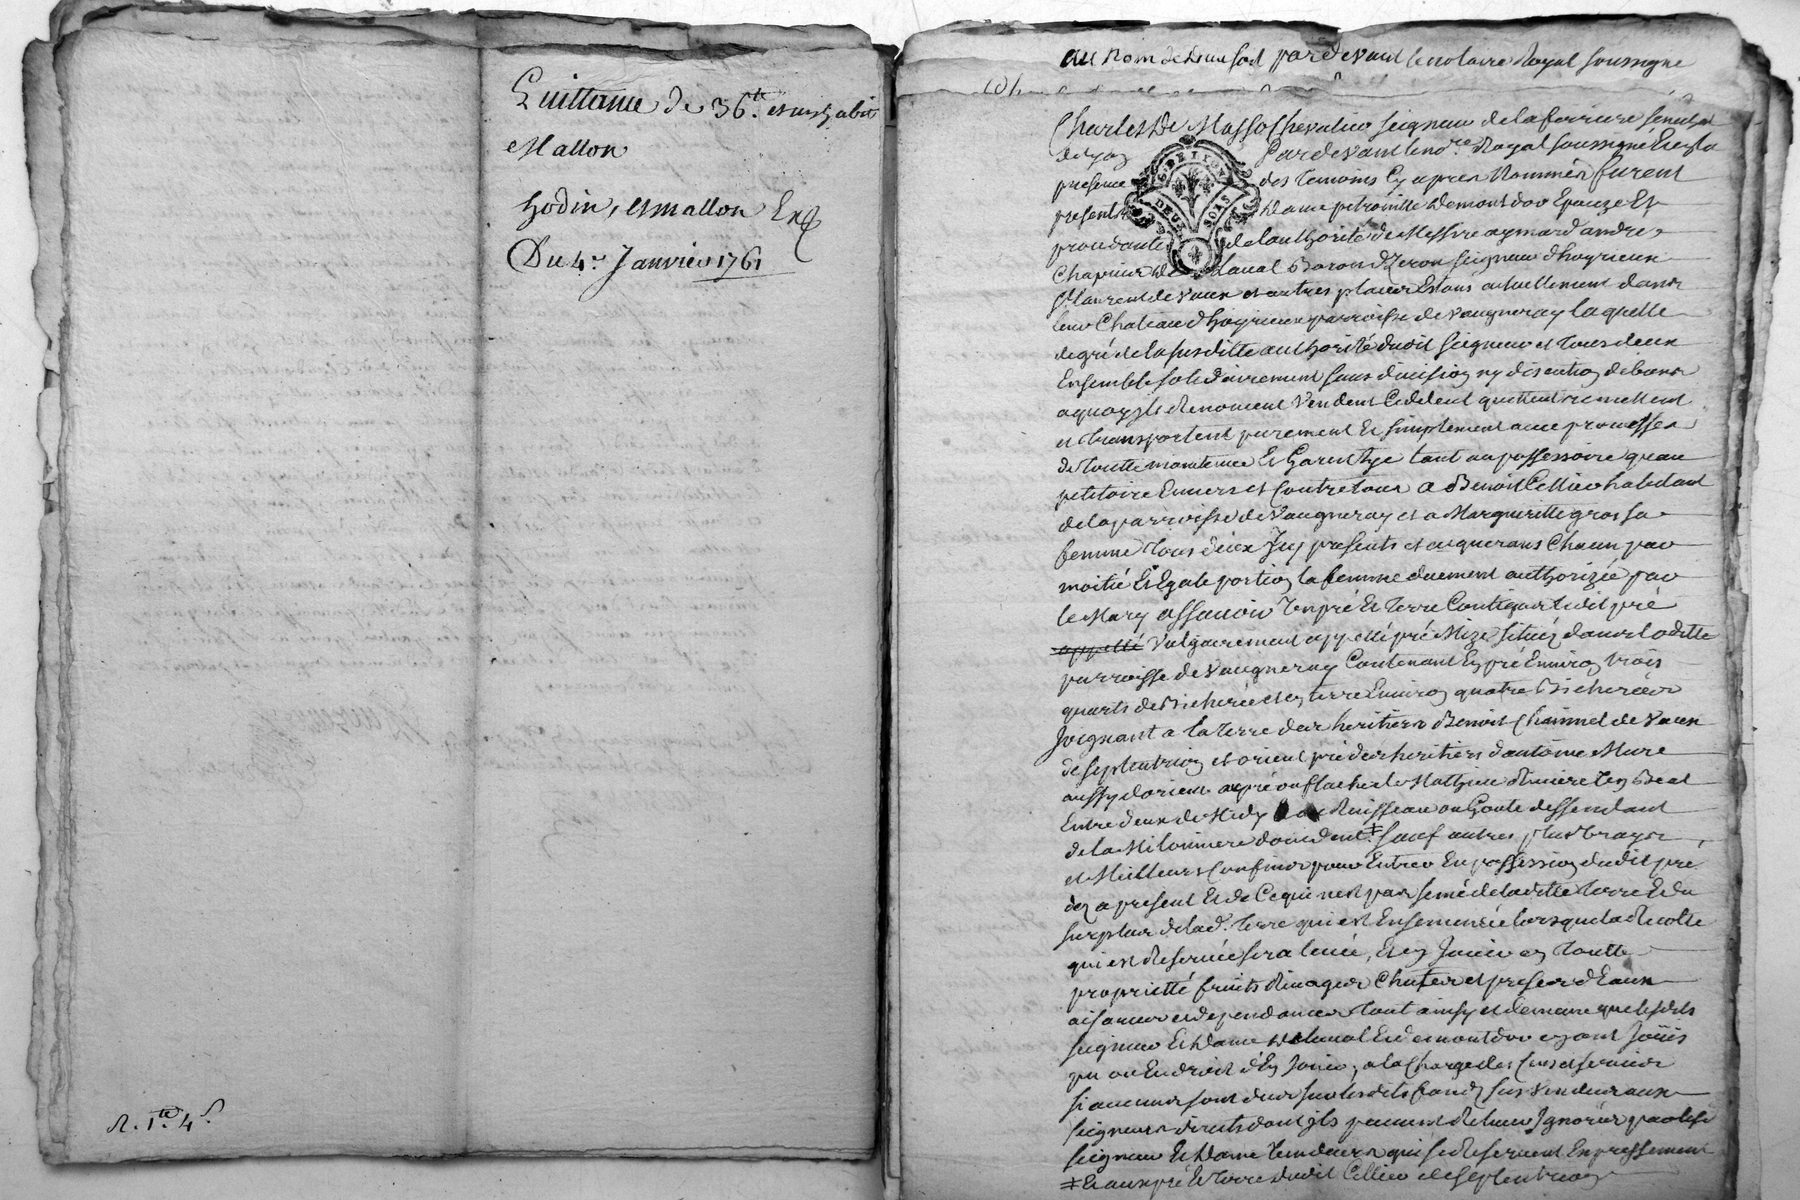 Quittance de 36.lt et un habit
Mallon
hodin, et mallon Exp
Du 4.e Janvier 1761
R. 1.lt 4.s
au Nom de Dieu soit pardevant le notaire Royal soussigne
Charles De Masso Chevalier seigneur de la ferriere senechal
de Lyon Pardevant le no.re Royal soussigné Et en la
presence des temoins Cy apres Nommés furent
presents Dame petronille Demontdor Epouze Et
procedante de lauthorité de Messire aymard andré
Chaprier De laval Baron dizeron seigneur dhoyrieux
St laurent de Vaux et autres places Estans actuellement dans
leur Chateau dhoyrieux parroisse de Vaugneray laquelle
de gré de la susditte authorité dudit seigneur et tous deux
Ensemble solidairement sans division ny discution de biens
a quoy ils Renoncent Vendent Ceddent quittent remettent
et transportent purement Et simplement avec promesses
de toutte maintenue Et Garentye tant au possessoire quau
petitoire Envers et Contre tous a Benoit Cellier habitant
de la parroisse de Vaugneray et a Margueritte gros sa
femme tous deux Icy presents et acquerans Chacun par
moitié Et Egale portion la femme duement authorizée par
le Mary assavoir Un pré Et terre Contigus ledit pré
appellé Vulgairement appellé pré Mize situéz dans laditte
parroisse de Vaugneray Contenant En pré Environ trois
quarts de Bicherée et en terre Environ quatre Bicherées
Joignant a la terre des heritiers Benoit Chainnel de Vaux
de septentrion et orient pré des heritiers dantoine Mure
aussy dorient au pré ou flachet de Mathieu Riviere Un Beal
Entre deux de Midy au Ruisseau ou Goute dessendant
de la Milonniere doccident ‡ sauf autres plus Vrayes
et Meilleurs Confins pour Entrer En possession dudit pré
dez a present Et de Ce qui nest pas semé de laditte terre Et du
surplus de lad. terre qui est Ensemencée lorsque la Recolte
qui est Reservée sera levée, Et en Jouir en toutte
proprietté fruits Rivages Chutes et prises dEaux
aisances et dependances tout ainsy et de meme que lesdits
seigneur Et Dame De laval Et demontdor en ont Joüis
pu ou Eu droit dEn Jouir, a la Charge des Cens et servis
si aucuns sont dus sur lesdits fonds sus Vendus aux
seigneurs directs dont ils peuvent Relever Ignorés par lesd
seigneur Et Dame Vendeurs qui se Reservent Expressement
‡ Et aux pré Et terre dudit Cellier de septentrion